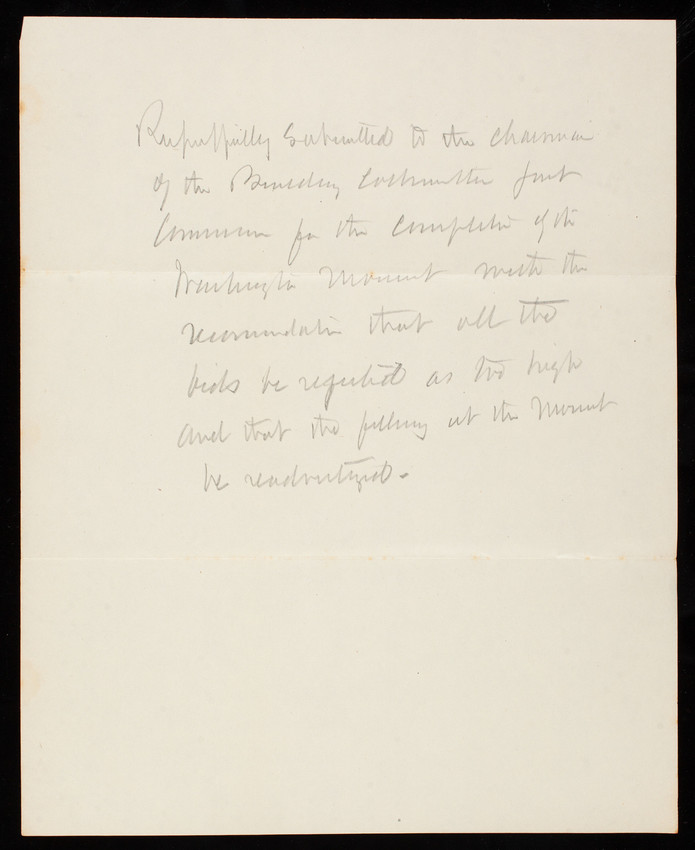 Respectfully Submitted to the Chairman
of the Building Committee Joint
Commission for the completion of the
Washington Monument with the
recommendation that all the
bids be rejected as too high
and that the filling at the Monument
be readvertized.